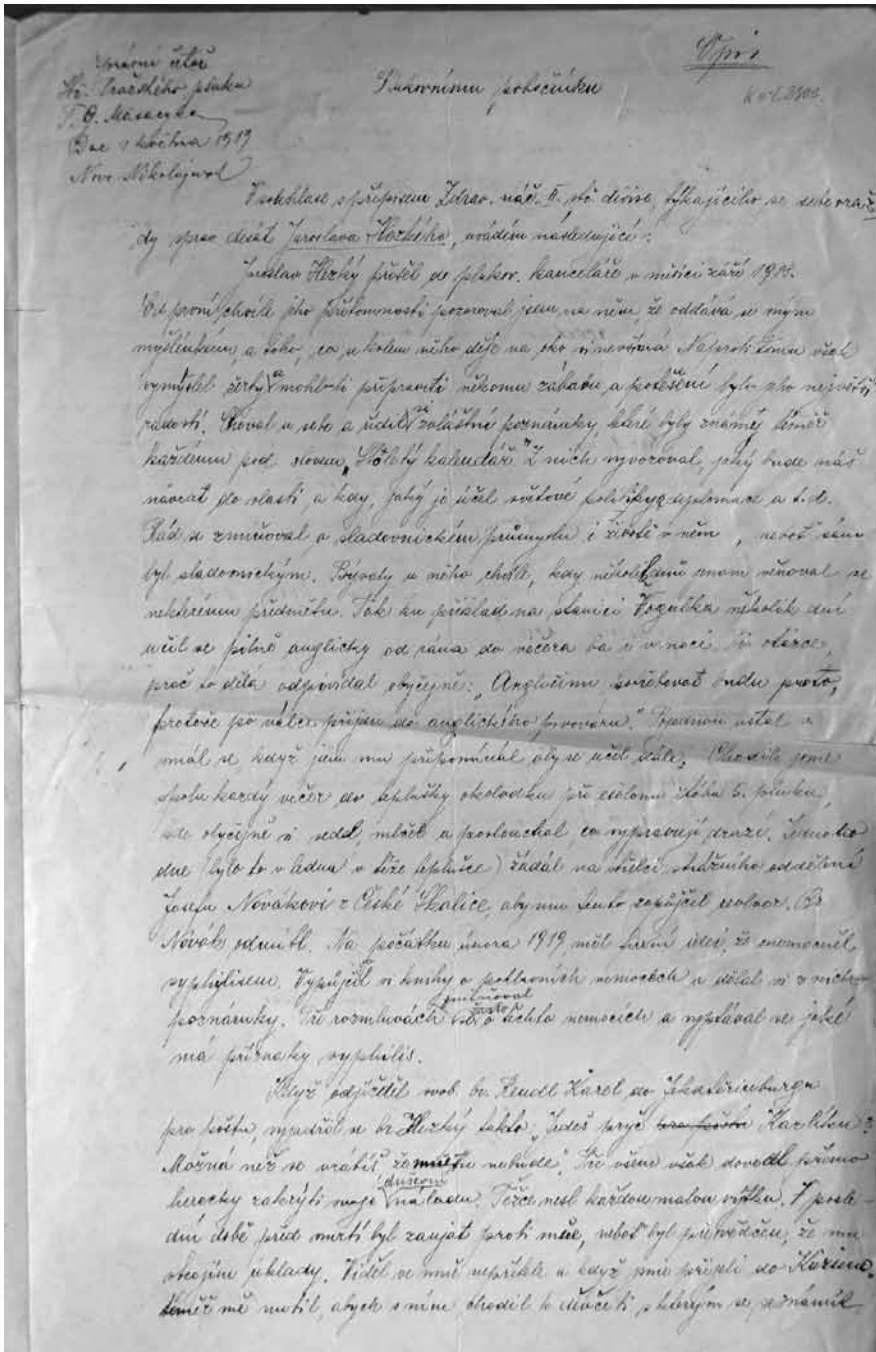 Opis
Správní účtař
Plukovnímu pobočníku
Stř. Pražského pluku
T. G. Masaryka
Dne května 1919
Novo Nikolajevsk
V souhlase s přípisem Zdrav. nač. II. stř. divise, týkajícího se sebevraž
dy sprav. desát. Jaroslava Hezkého, uvádím následující:
Jaroslav Hezký přišel do plukov. kanceláře v měsíci září 1918.
Od první chvíle jeho přítomnosti pozoroval jsem na něm, že oddává se svým
myšlénkám, a toho, co se kolem něho děje na oko si nevšímá. Naproti tomu však
vymýšlel žerty a mohl-li připraviti někomu zábavu a potěšení bylo jeho největší
radostí. Choval u sebe a řídil si zvláštní poznámky, které byly známy téměř
každému pod slovem „Stoletý kalendář". Z nich vyvozoval, jaký bude náš
návrat do vlasti a kdy, jaký je účel světové politiky, diplomacie a t. d.
Rád se zmiňoval o sladovnickém průmyslu i životě v něm, neboť sám
byl sladovnickým. Bývaly u něho chvíle, kdy několik dnů snom věnoval se
některému předmětu. Tak ku příklad na stanici Vogulka několik dní
učil se pilně anglicky od rána do večera ba i v noci. Při otázce,
proč to dělá odpovídal obyčejně: „Angličinu potřebovat budu proto,
protože po válce přijdu do anglického pivovaru." Pojednou ustal a
smál se, když jsem mu připomínal aby se učil dále. Chodili jsme
spolu každý večer do tepлušky okolodku při ešelonu štábu 5. pluku,
kde obyčejně si sedl, mlčel a poslouchal, co vypravují druzí. Jednoho
dne (bylo to v lednu v téže tepłušce) žádal na veliteli strážního oddělení
Josefu Novákovi z České Skalice, aby mu tento zapůjčil revolver. Br.
Novák odmítl. Na počátku února 1919, měl fixní ideu, že onemocněl
syphilisem. Vypůjčil si knihy o pohlavních nemocech a dělal si z nich
poznámky. Při rozmluvách zmiňoval se často o těchto nemocích a vyptával se jaké
má příznaky syphilis.
Když odjížděl svob. br. Rendl Karel do Jekatěrinburgu
pro poštu, vyjádřil se br. Hezký takto: „Jedeš pryč pro poštu Karlíčku?
Možná než se vrátíš, že mne tu nebude". Při všem však dovedl přímo
herecky zakrýti svoji duševní náladu. Těžce nesl každou malou výtku. V posle-
dní době před smrtí byl zaujat proti mně, neboť byl přesvědčen, že mu
strojím úklady. Viděl ve mně nepřítele a když jsme přijeli do Kuzina
téměř mě nutil, abych s ním chodil k děvčeti s kterým se seznámil